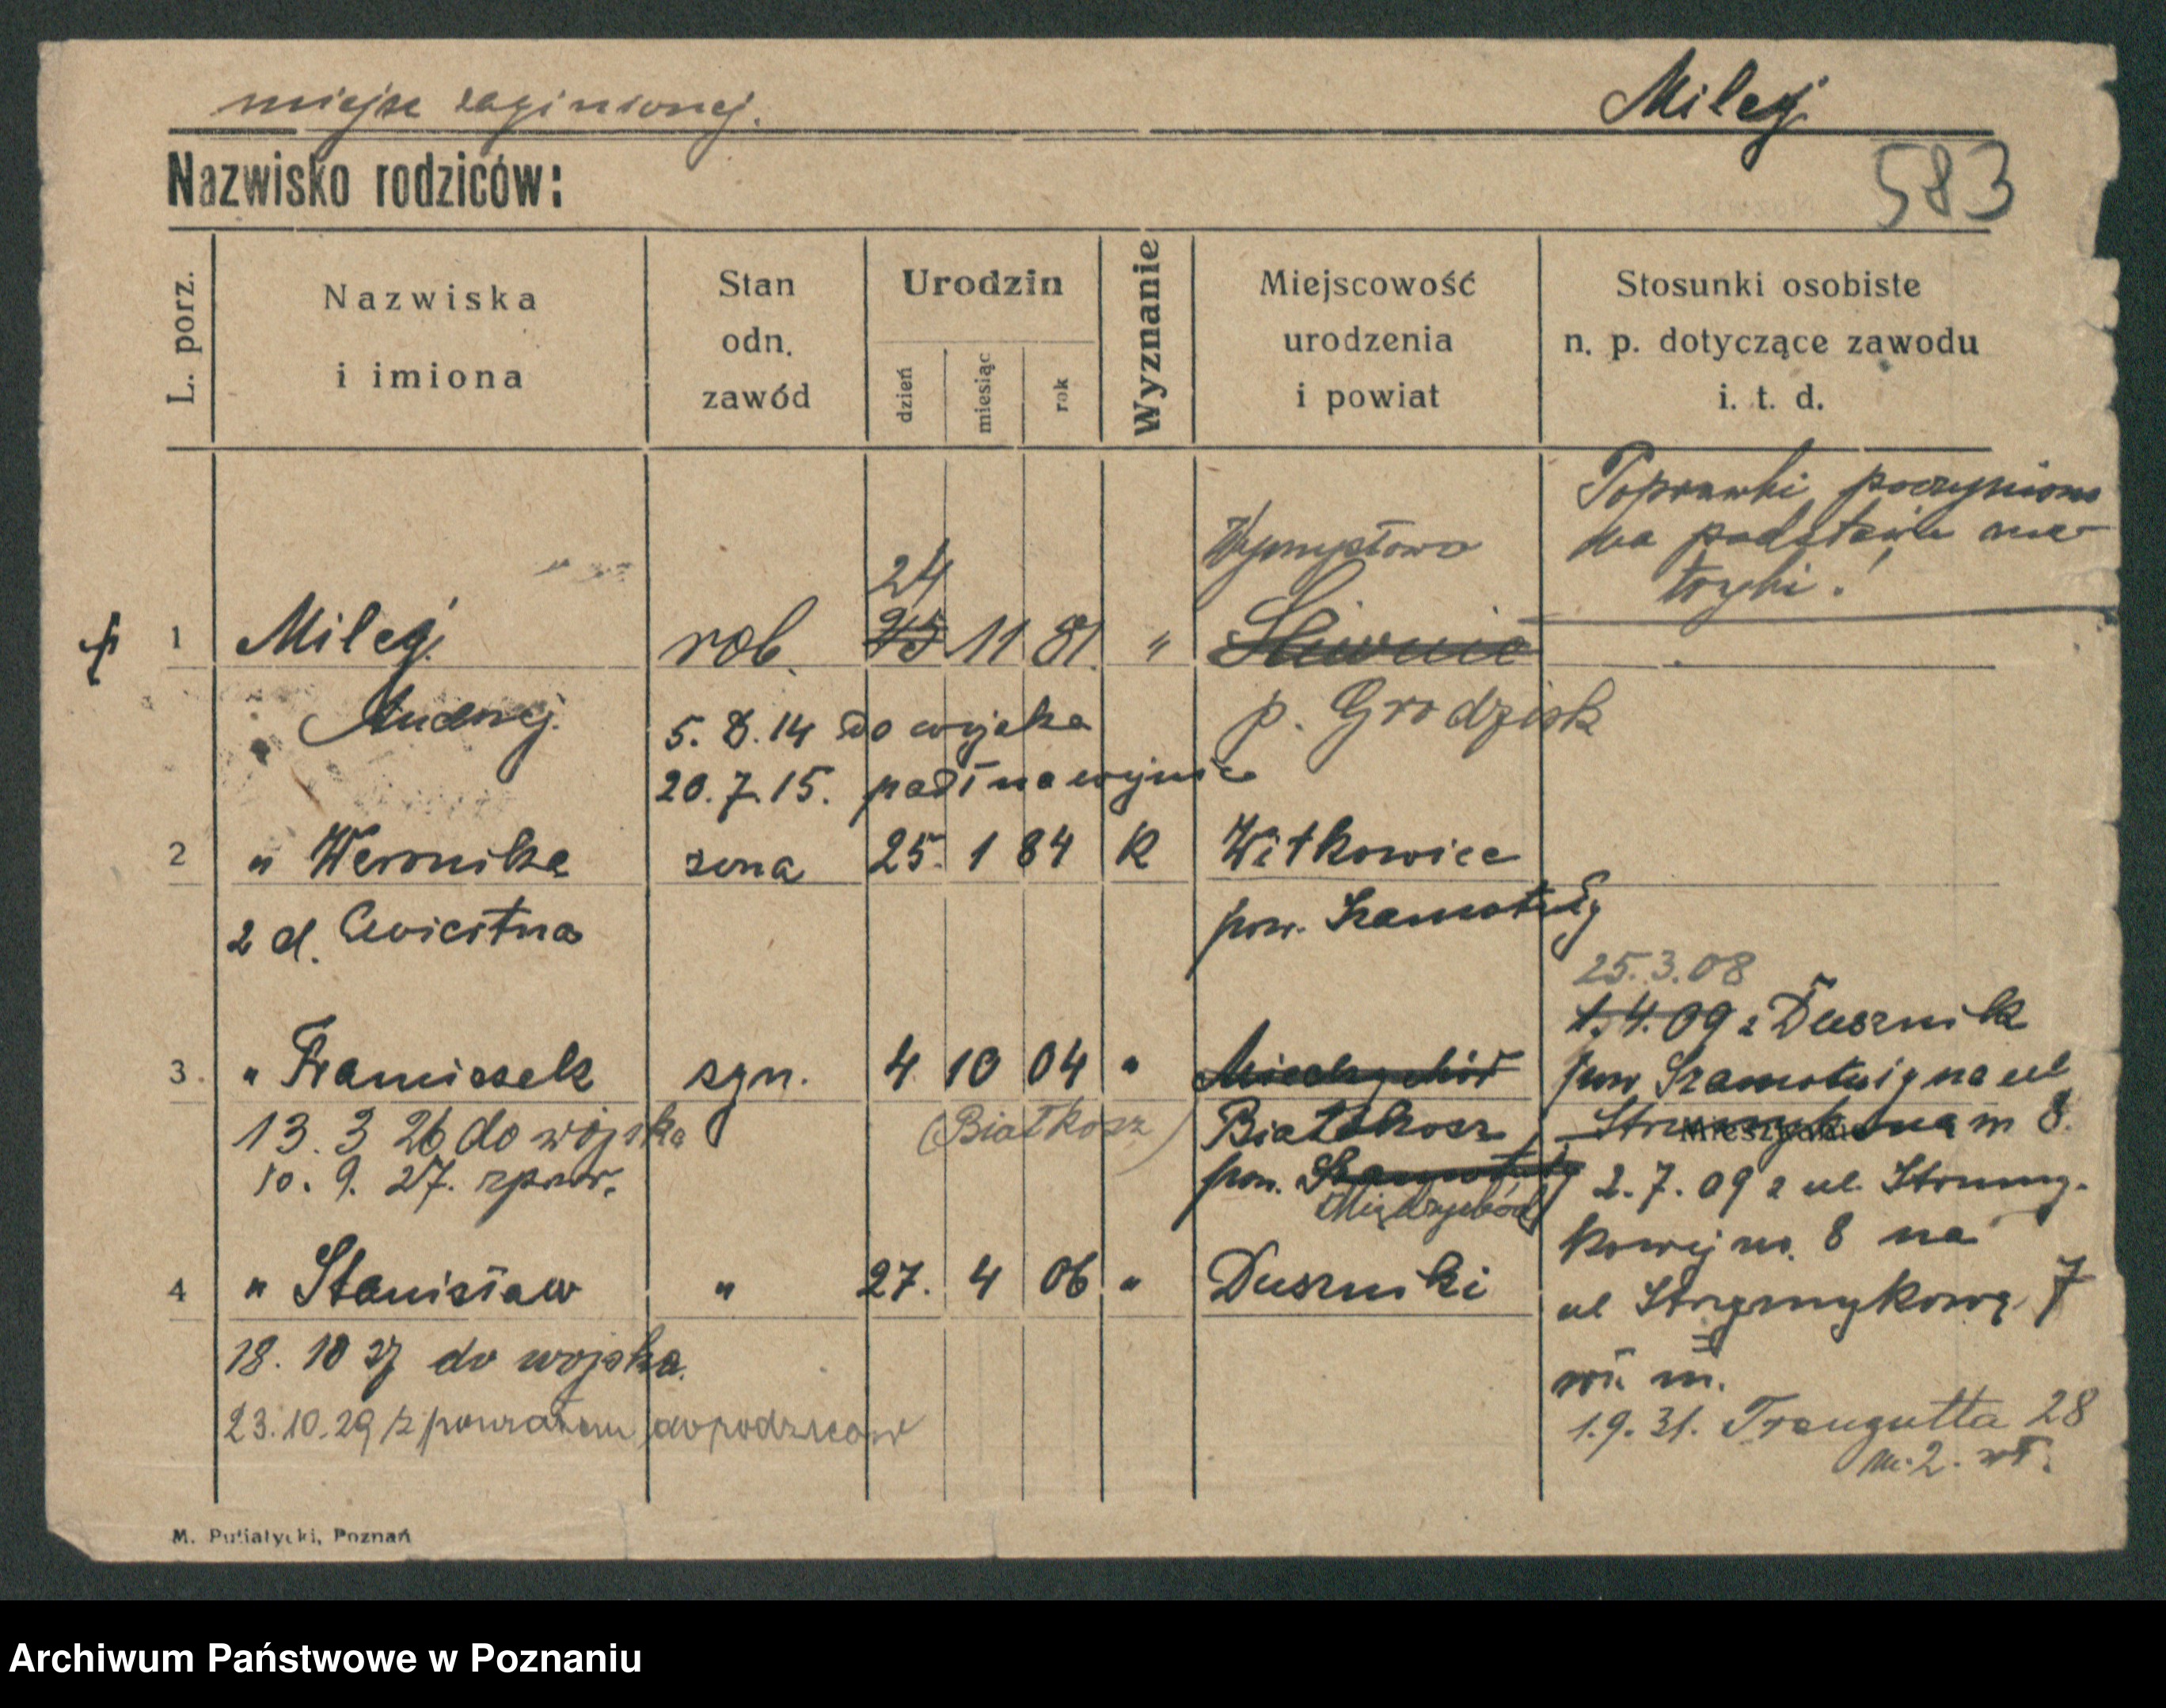 miejsc zaginionej.
Milej
Nazwisko rodziców:
583
L. porz.
Nazwiska
i imiona
Stan
odn.
zawód
Urodzin
dzień
miesiąc
rok
Wyznanie
Miejscowość
urodzenia
i powiat
Stosunki osobiste
n. p. dotyczące zawodu
i. t. d.
Poprawki poczyniono
na podstawie me-
tryki!
Wymysłowo
24
1 Milej rob. 25 11 81. "
Andrzej. p. Grodzisk
5. 8. 14 do wojska
20. 7. 15. padł na wojnie
2 " Weronika żona 25. 1 84 K Witkowice
2 d. pow. Szamotuły
25.3.08
1. 4. 09 z Dusznik
3. " Franciszek syn. 4 10 04 " Miedzychód pow Szamotuły na ul
13. 3 26 do wojska (Białkosz) Białokosz m 8.
Mieszkanie
10. 9. 27. zpow. pow. Szamotuły 2. 7. 09 z ul. Strumy-
Międzychód
kowej no. 8 na
4 " Stanisław " 27. 4 06 " Duszniki
ul Strzymykową 7
18. 10 27 do wojska.
m.
23.10.29 z powrotem do rodziców
1.9.31. Traugutta 28
m. 2. wł.
M. Putiatycki, Poznań
Archiwum Państwowe w Poznaniu